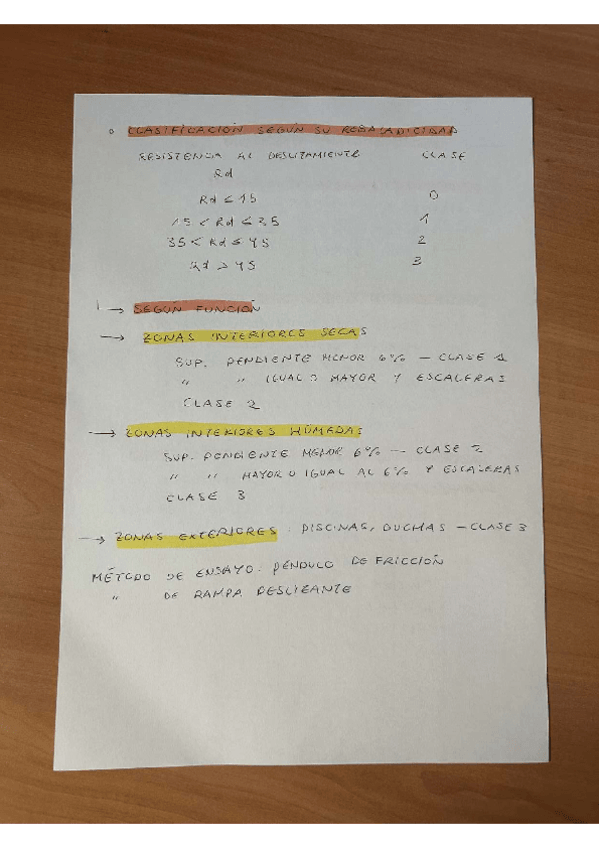 ° CLASIFICACIÓN SEGÚN SU RESBALADICIDAD
RESISTENCIA AL DESLIZAMIENTO CLASE
Rd
Rd ≤ 15 0
15 < Rd ≤ 35 1
35 < Rd ≤ 45 2
Rd > 45 3
→ SEGÚN FUNCIÓN
→ ZONAS INTERIORES SECAS
SUP. PENDIENTE MENOR 6% — CLASE 1
" " IGUAL O MAYOR Y ESCALERAS
CLASE 2
→ ZONAS INTERIORES HÚMEDAS
SUP. PENDIENTE MENOR 6% — CLASE 2
" " MAYOR O IGUAL AL 6% Y ESCALERAS
CLASE 3
→ ZONAS EXTERIORES. PISCINAS, DUCHAS — CLASE 3
MÉTODO DE ENSAYO. PÉNDULO DE FRICCIÓN
" DE RAMPA DESLIZANTE